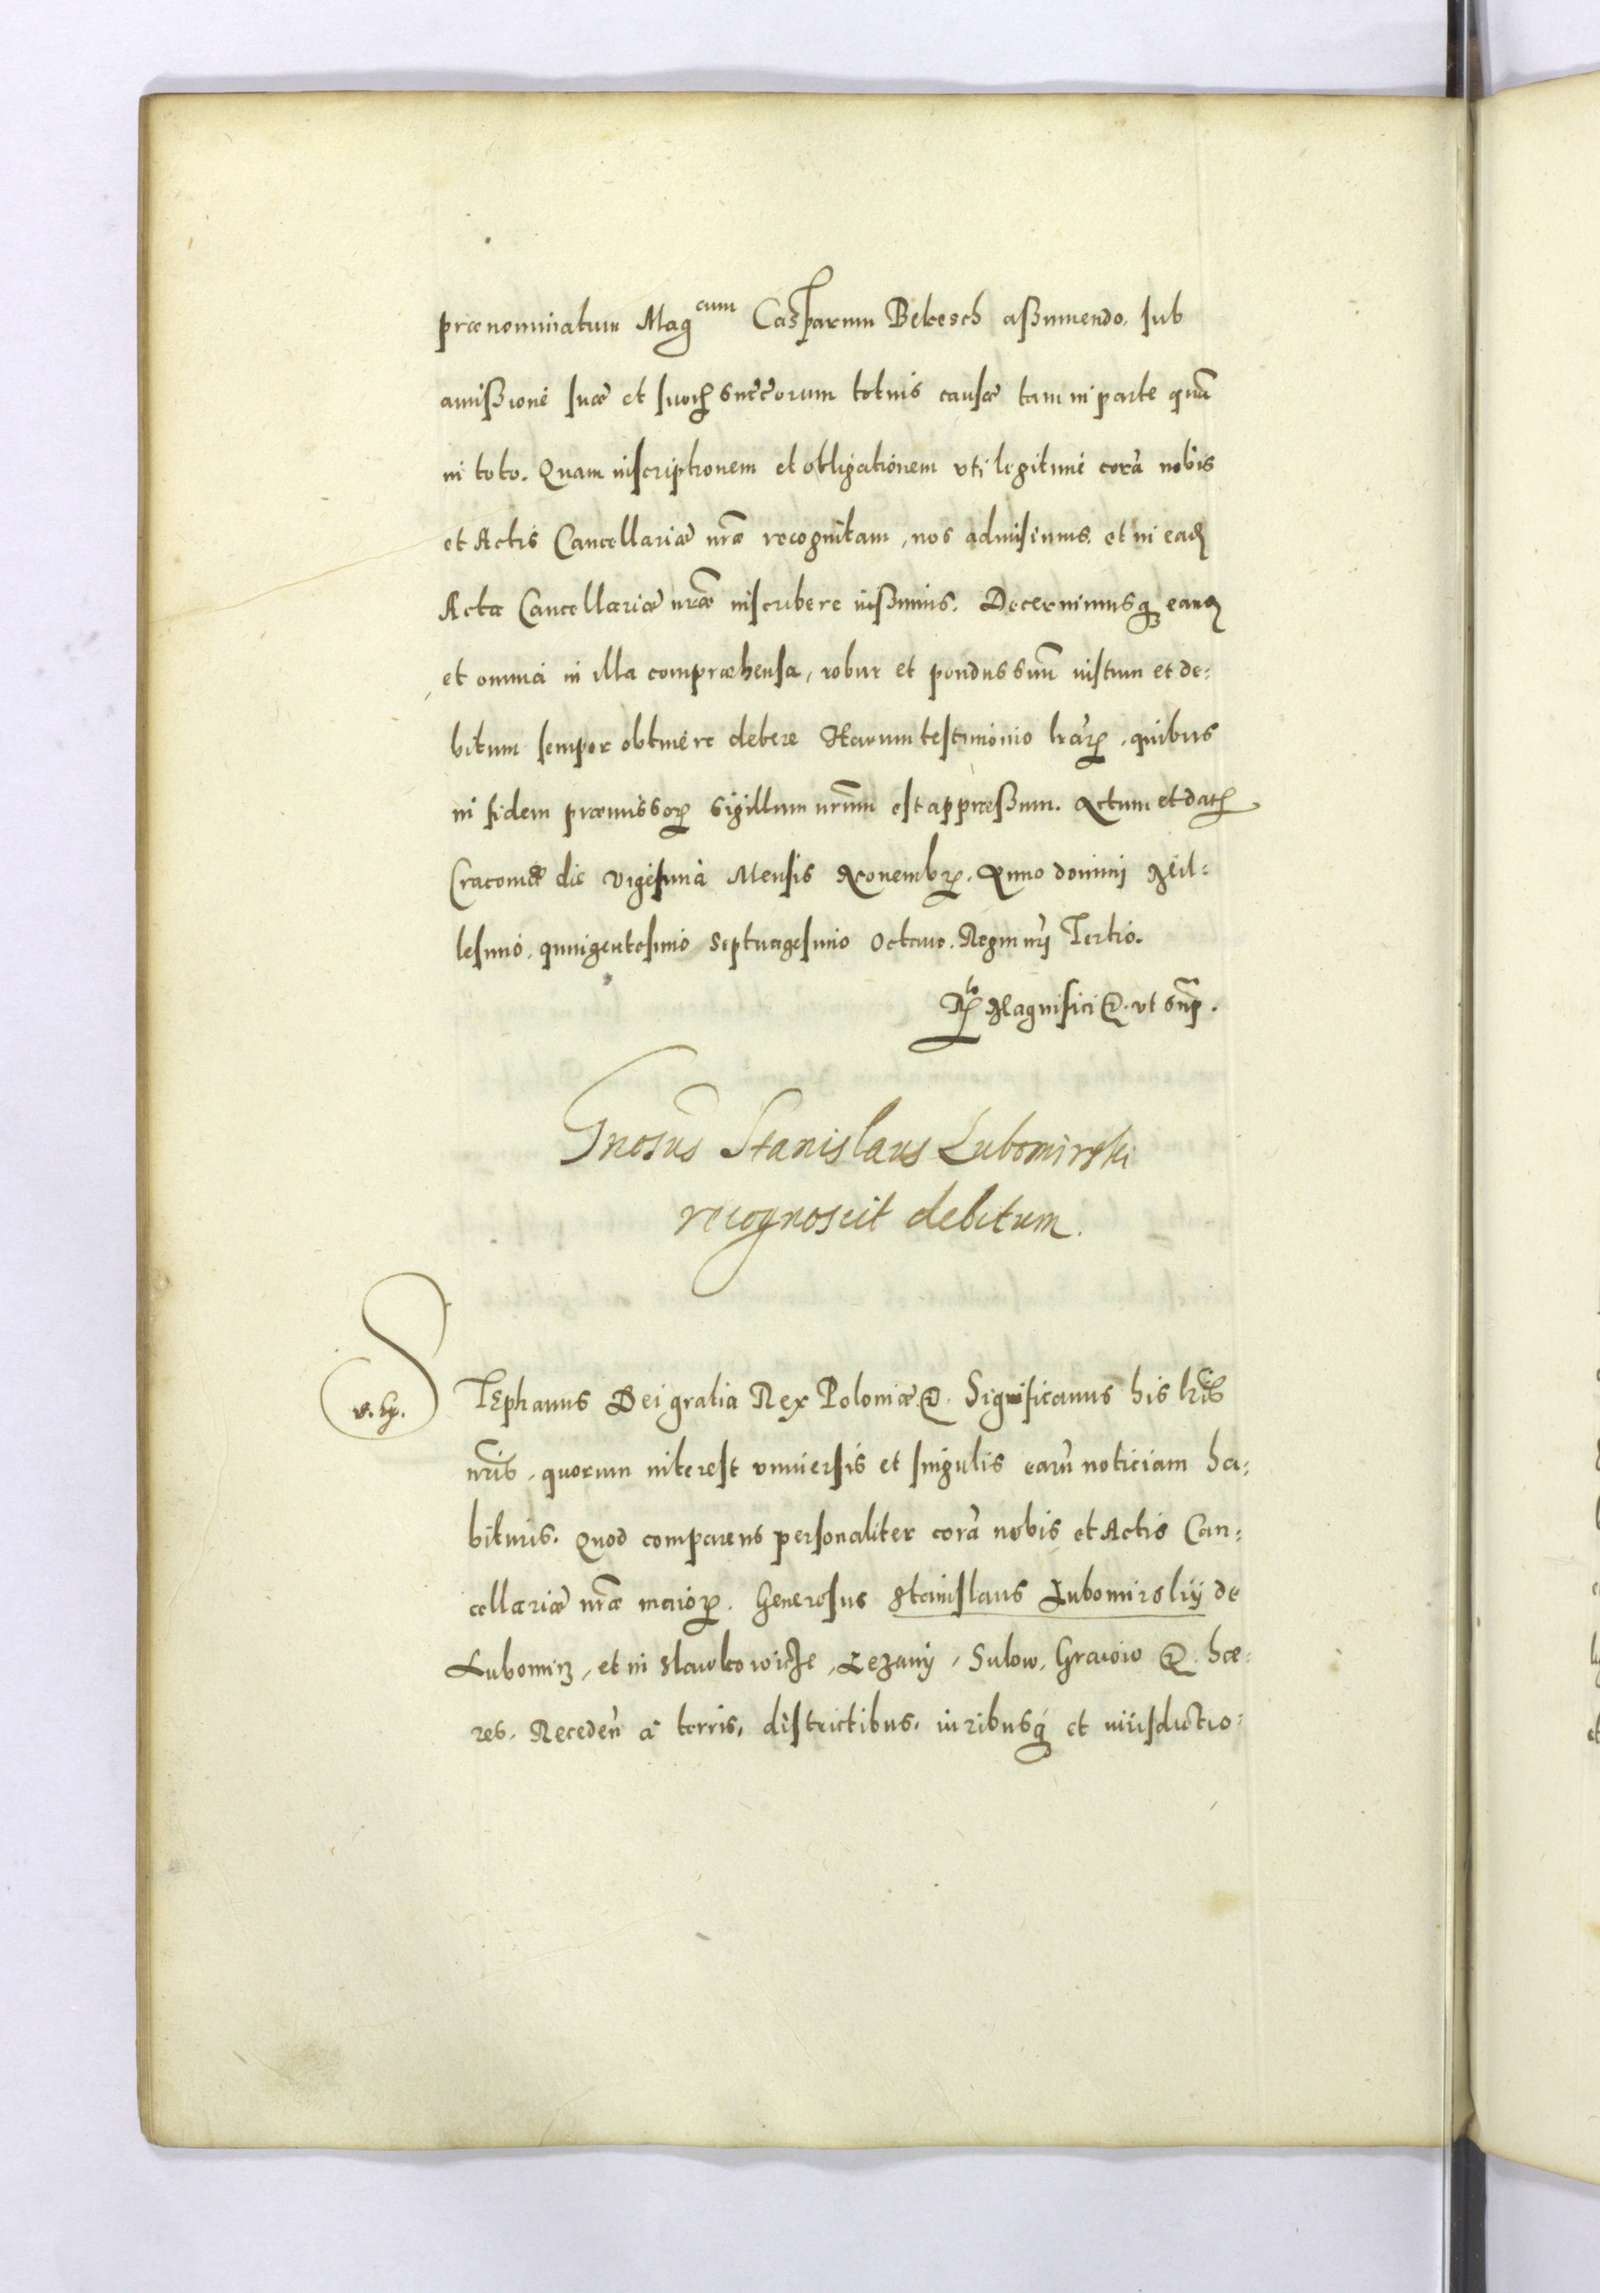 prænominatum Mag^cum Casparum Bekesch aßumendo, sub
amißione suæ et suor᷒ succ̃orum totius causæ tam in parte quã
in toto. Quam inscriptionem et obligationem uti legitime corã nobis
et Actis Cancellariæ nr̃æ recognitam, nos admisimus, et in eadẽ
Acta Cancellariæ nr̃æ inscribere iußimus. Decernimusq3 eandẽ
et omnia in illa compræhensa, robur et pondus suũ iustum et de=
bitum semper obtinere debere Harum testimonio lr̃ar᷒, quibus
in fidem præmissor᷒ sigillum nr̃um est appræßum. Actum et dat᷒
Cracoviæ die vigesima Mensis Novembr᷒. Anno domini Mil=
lesimo, quingentesimo septuagesimo octavo. Regni nr̃j Tertio.
R^lo Magnifici &. ut supr̃.
Gnosus̃ Stanislaus Lubomirski
recognoscit debitum.
STEphanus Dei gratia Rex Poloniæ &. Significamus his lr̃is
nr̃is, quorum interest universis et singulis earũ noticiam ha=
bituris. Quod comparens personaliter corã nobis et Actis Can=
cellariæ nr̃æ maior᷒. Generosus Stanislaus Lubomirskij de
Lubomirz, et in Slawkowicze, Lezany, Sulow, Grawow &. hæ=
res. Recedeñ à terris, districtibus, iuribusq3 et iurisdictio=